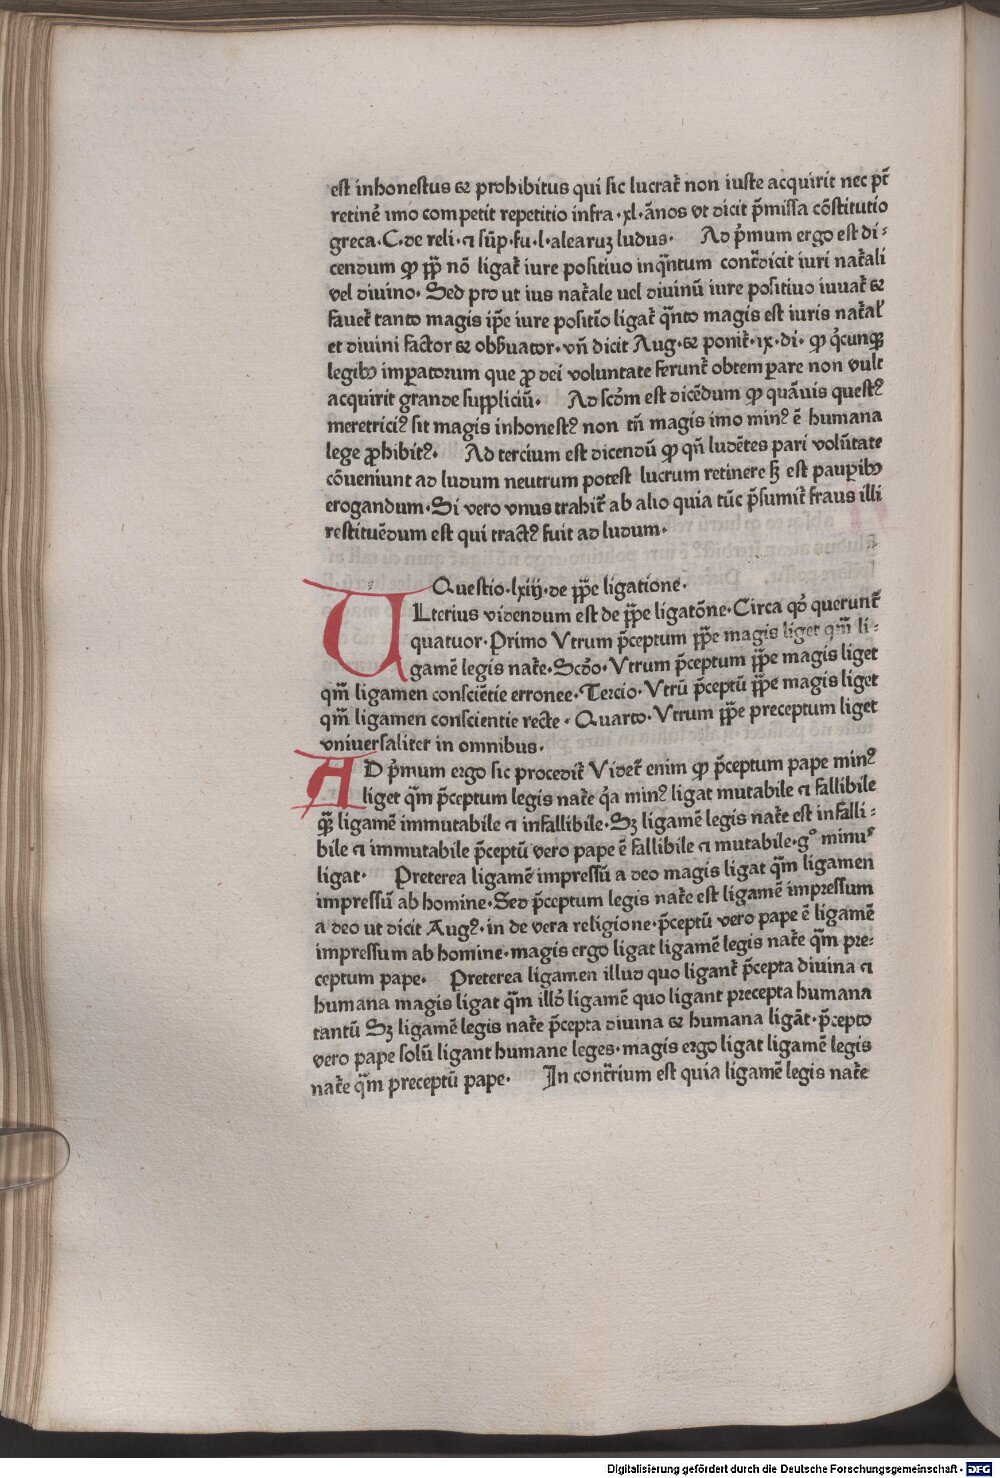 est inhonestus ⁊ prohibitus qui sic lucrat̄ non iuste acquirit nec pt̄
retinē imo competit repetitio infra·xl·ānos vt dicit p̄missa cōstitutio
greca·C·de reli·⁊ sūp·fu·l·alearuꝫ ludus· Ad p̄mum ergo est di⸗
cendum ꝙ pp̄ nō ligat̄ iure positiuo inq̄ntum cont̄dicit iuri nat̄ali
vel diuino· Sed pro ut ius nat̄ale uel diuinū iure positiuo iuuat̄ ⁊
fauet̄ tanto magis ip̄e iure positīo ligat̄ qn̄to magis est iuris nat̄al̄
et diuini factor ⁊ obẜuator·vn̄ dicit Aug·⁊ ponit̄·ix·di· ꝙ q̇cunqꝫ
legibꝫ imꝑatorum que ꝓ dei voluntate ferunt̄ obtemperare non vult
acquirit grande suppliciū· Ad scd̄m est dicēdum ꝙ quāuis questꝰ
meretriciꝰ sit magis inhonestꝰ non tn̄ magis imo minꝰ ē humana
lege ꝓhibitꝰ· Ad tercium est dicendū ꝙ qn̄ ludētes pari volūtate
cōueniunt ad ludum neutrum potest lucrum retinere sꝫ est pauꝑibꝫ
erogandum·Si vero vnus trahit̄ ab alio quia tūc p̄sumit̄ fraus illi
restituēdum est qui tractꝰ fuit ad ludum·
Questio·lxiij·de pp̄e ligatione·
ULterius videndum est de pp̄e ligatōne·Circa qd̄ querunt̄
quatuor·Primo Vtrum p̄ceptum pp̄e magis liget qm̄ li⸗
gamē legis nat̄e·Scd̄o·Vtrum p̄ceptum pp̄e magis liget
qm̄ ligamen consciētie erronee·Tercio·Vtrū p̄ceptū pp̄e magis liget
qm̄ ligamen conscientie recte·Quarto·Vtrum pp̄e preceptum liget
vniuersaliter in omnibus·
AD p̄mum ergo sic procedit̄ Videt̄ enim ꝙ p̄ceptum pape minꝰ
liget qm̄ p̄ceptum legis nat̄e q̇a minꝰ ligat mutabile ⁊ fallibile
qm̄ ligamē immutabile ⁊ infallibile·Sꝫ ligamē legis nat̄e est infalli⸗
bile ⁊ immutabile p̄ceptū vero pape ē fallibile ⁊ mutabile·gͦ minuˢ
ligat· Preterea ligamē impressū a deo magis ligat qm̄ ligamen
impressū ab homine·Sed p̄ceptum legis nat̄e est ligamē impressum
a deo ut dicit Augꝰ·in de vera religione·p̄ceptū vero pape ē ligamē
impressum ab homine·magis ergo ligat ligamē legis nat̄e qm̄ pre⸗
ceptum pape· Preterea ligamen illud quo ligant̄ p̄cepta diuina ⁊
humana magis ligat qm̄ illd̄ ligamē quo ligant precepta humana
tantū Sꝫ ligamē legis nat̄e p̄cepta diuina ⁊ humana ligāt·p̄cepto
vero pape solū ligant humane leges·magis ergo ligat ligamē legis
nat̄e qm̄ preceptū pape· In cont̄rium est quia ligamē legis nat̄e
Digitalisierung gefördert durch die Deutsche Forschungsgemeinschaft - DFG